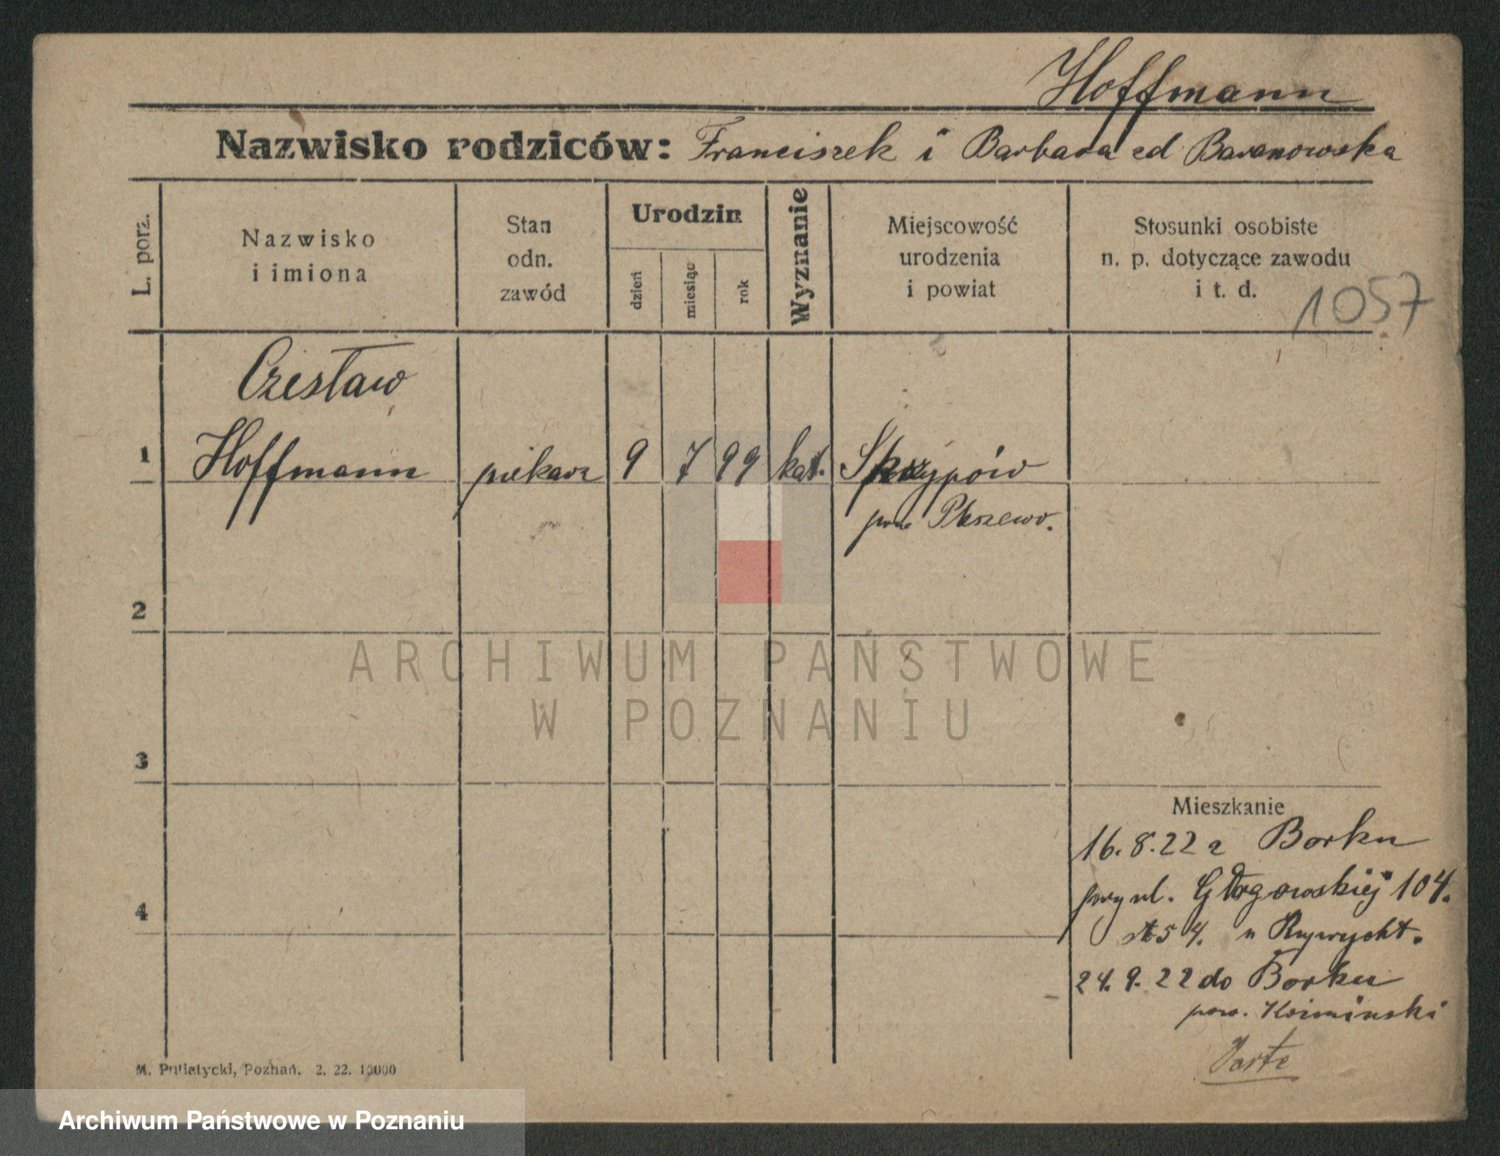 Hoffmann
Nazwisko rodziców: Franciszek i Barbara zd Baranowska
L. porz.
Nazwisko
i imiona
Stan
odn.
zawód
Urodzin
dzień
miesiąc
rok
Wyznanie
Miejscowość
urodzenia
i powiat
Stosunki osobiste
n. p. dotyczące zawodu
i t. d.
1057
Czesław
1 Hoffmann piekarz 9 7 99 kat. Skrzypów
pow Pleszew.
2
3
4
Mieszkanie
16.8.22 z Borku
przy ul. Głogowskiej 104.
54. u
24.9.22 do Borku
pow. Koźmiński
M. Putiatycki, Poznań. 2. 22. 10000
ARCHIWUM PAŃSTWOWE
W POZNANIU
Archiwum Państwowe w Poznaniu